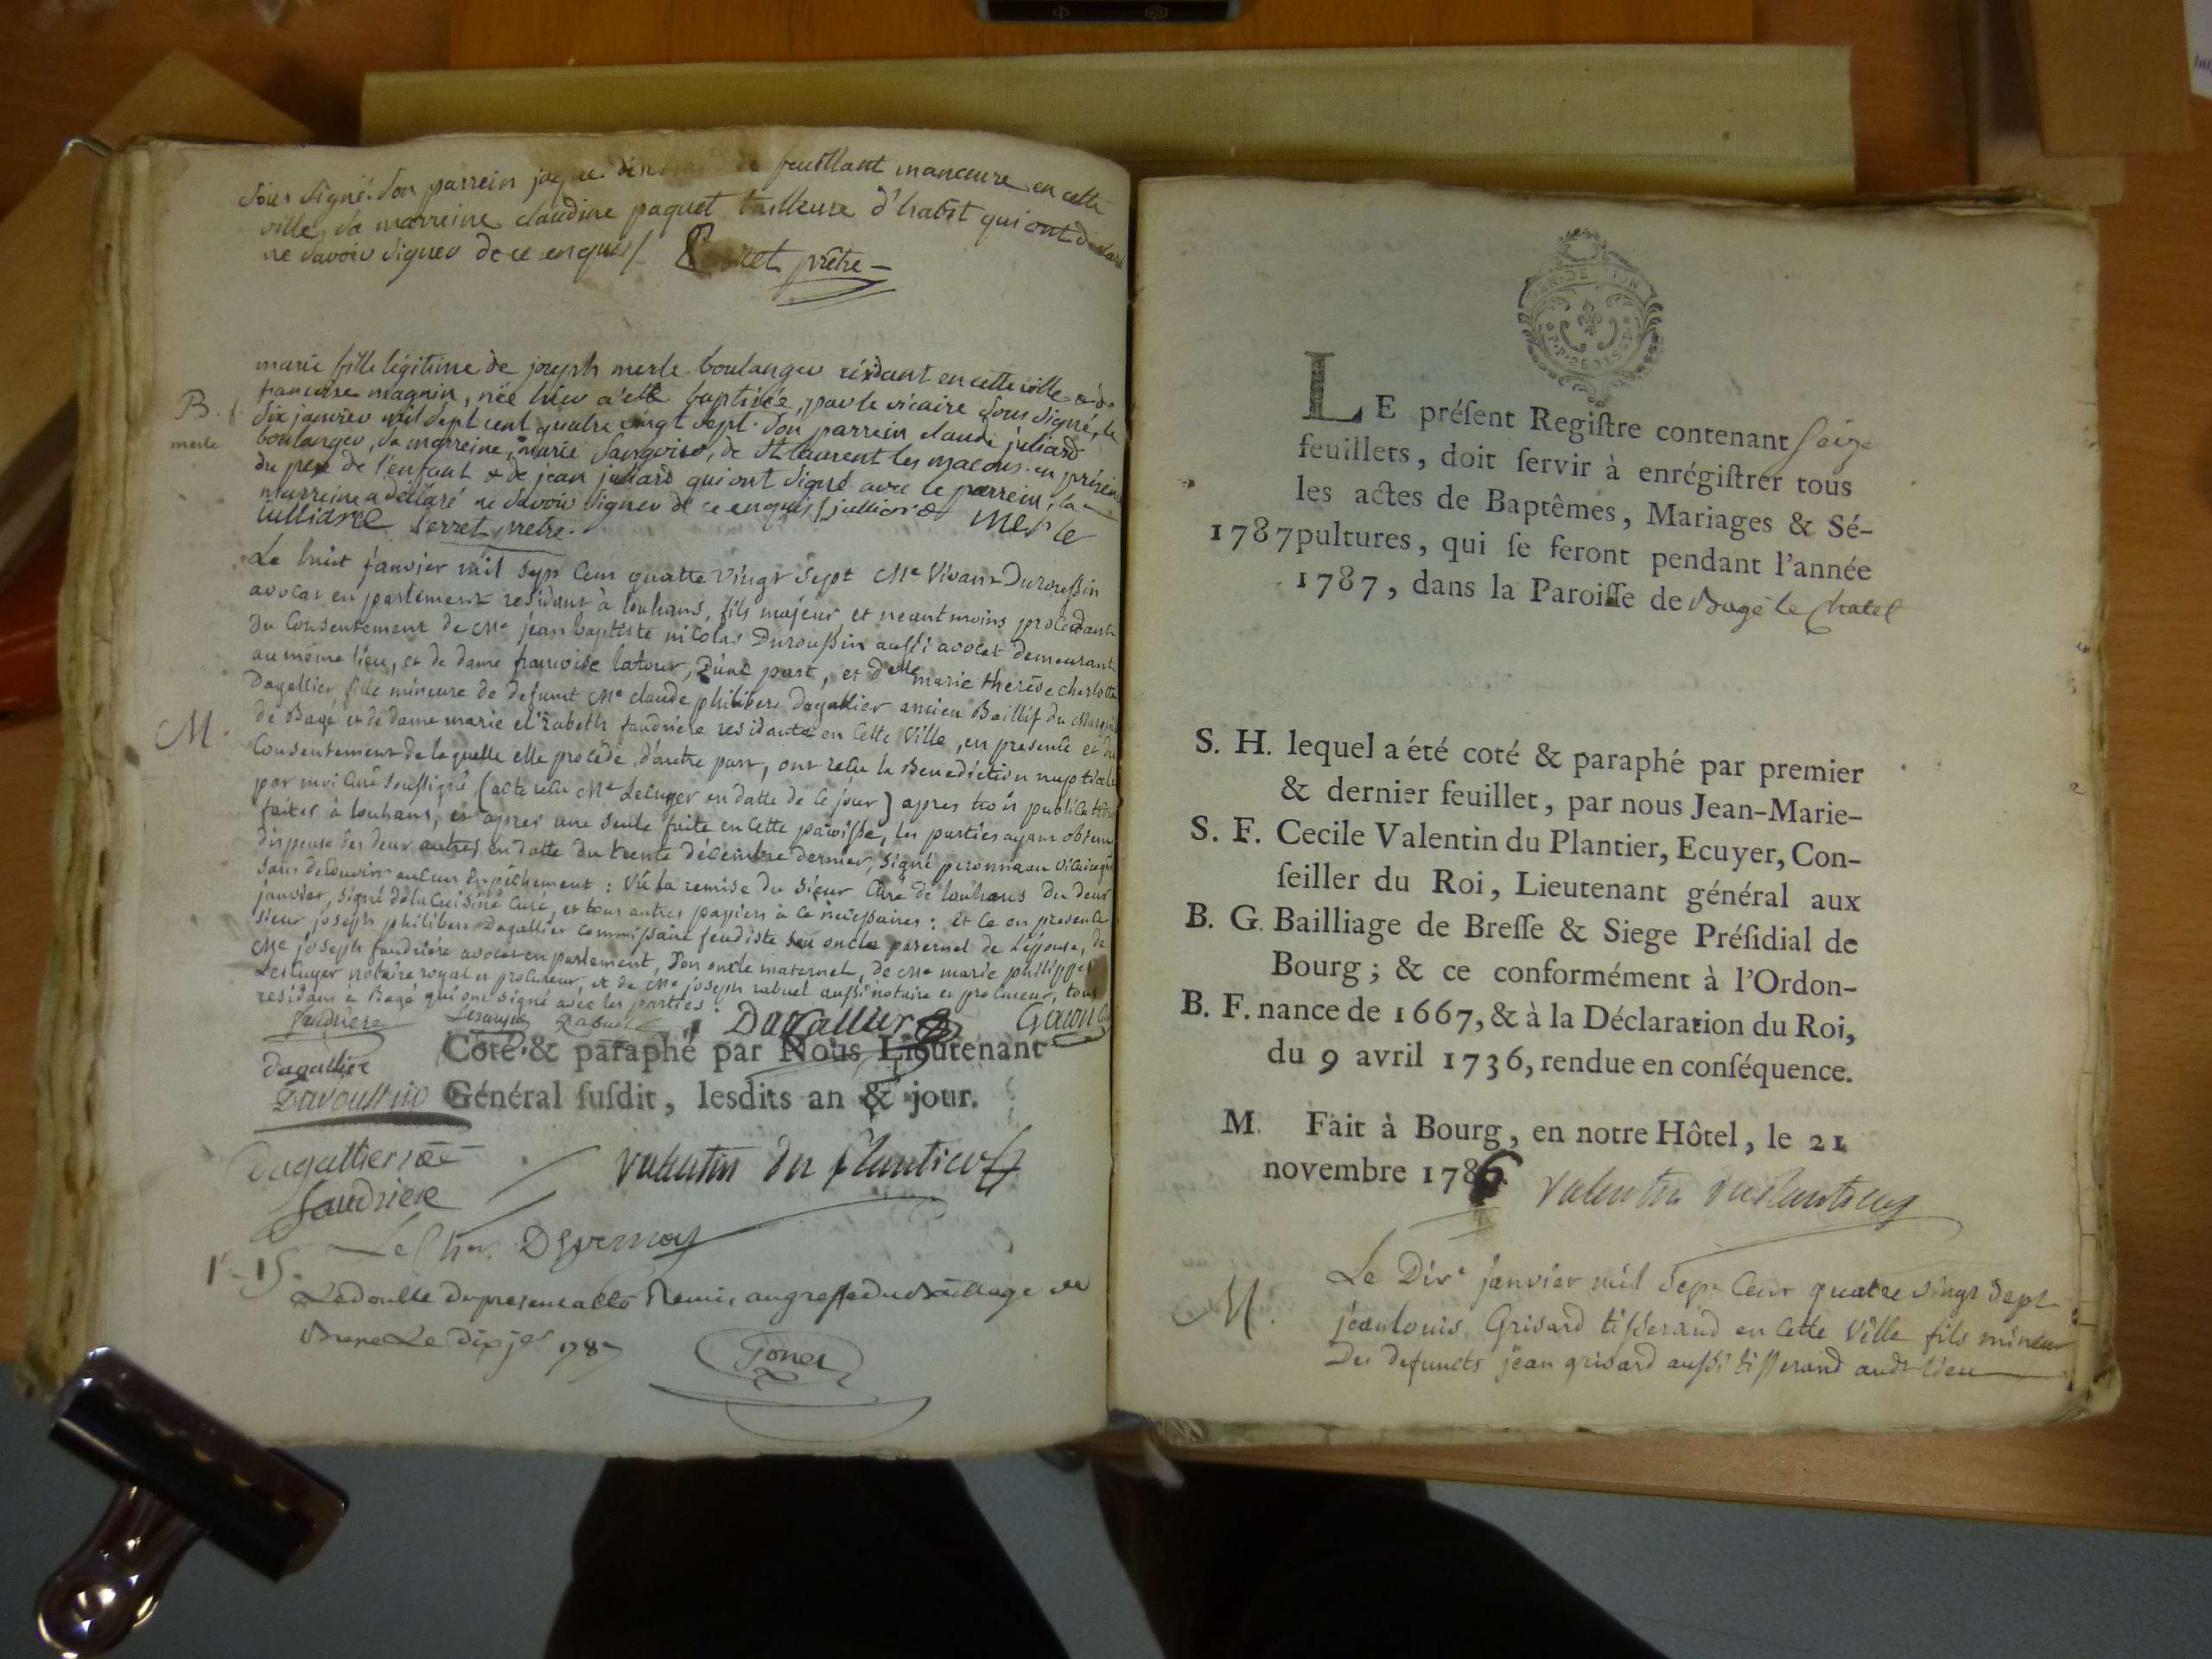 sous signé. son parrein jaque feuillant manœuvre en cette
ville, sa marreine claudine paquet tailleuse d'habit qui ont déclaré
ne savoir signer de ce enquis /. prêtre
marie fille légitime de joseph merle boulanger résidant en cette ville & de
francoise magnin, née hier a été baptisée, par le vicaire sous signé, le
B. f. six janvier mil sept cent quatre vingt sept. son parrein claude juliard
merle boulanger, sa marreine, marie de St laurent les macons. en présence
du pere de l'enfant & de jean juliard qui ont signé avec le parrein, la
marreine a déclaré ne savoir signer de ce enquis / julliard merle
julliard Perret prêtre.
Le huit janvier mil sept cent quatre vingt sept Me Vivant Duroussin
avocat en parlement residant à louhans, fils majeur, et neantmoins procedant
du Consentement de Me jean baptiste nicolas Duroussin aussi avocat demeurant
au même lieu, et de dame francoise latour, d'une part, et delle marie therèse charlotte
Dagallier fille mineure de defunt Me claude philibert dagallier ancien Baillif du Marquisat
M. de Bagé et de dame marie elizabeth faudrière residante en Cette Ville, en presence et du
Consentement de laquelle elle procède d'autre part, ont reçu la Benediction nuptiale
par moi Curé soussigné (acte recu Me Lescuyer en datte de ce jour) apres trois publications
faites à louhans, et apres une seule faite en cette paroisse, les parties ayant obtenu
dispense des deux autres en datte du trente décembre dernier, signé peronneau
sans découvrir aucun empêchement : Vû la remise du sieur Curé de louhans du deux
janvier, signé delaCuisine Curé, et tous autres papiers à ce necessaires : et ce en presence
sieur joseph philibert Dagallier commissaire feudiste son oncle paternel de l'épouse, de
Me joseph faudrière avocat en parlement, son oncle maternel, de Me marie philippe
Lescuyer notaire royal et procureur, et de Me joseph rabuel aussi notaire et procureur, tous
residans à Bagé qui ont signé avec les parties.
faudriere Lescuyer Rabuel Dagallier
Coté & paraphé par Nous Lieutenant
dagallier
Duroussin Général ſuſdit, lesdits an & jour.
dagallier
Valentin du plantier
faudriere
Le Cher.
Le double du present acte Remis au greffe du Bailliage de
Bresse Le dix jer 1787
LE préſent Regiſtre contenant seize
feuillets, doit ſervir à enrégiſtrer tous
les actes de Baptêmes, Mariages & Sé-
1787 pultures, qui ſe feront pendant l'année
1787, dans la Paroiſſe de Bagé le Chatel
S. H. lequel a été coté & paraphé par premier
& dernier feuillet, par nous Jean-Marie-
S. F. Cecile Valentin du Plantier, Ecuyer, Con-
ſeiller du Roi, Lieutenant général aux
B. G. Bailliage de Breſſe & Siege Préſidial de
Bourg ; & ce conformément à l'Ordon-
B. F. nance de 1667, & à la Déclaration du Roi,
du 9 avril 1736, rendue en conſéquence.
M. Fait à Bourg, en notre Hôtel, le 21
novembre 1786
Valentin du Plantier
Le Dix janvier mil Sept Cent quatre vingt Sept
M. jean louis Grisard tisserand en Cette Ville fils mineur
Des defuncts jean grisard aussi tisserand audt lieu